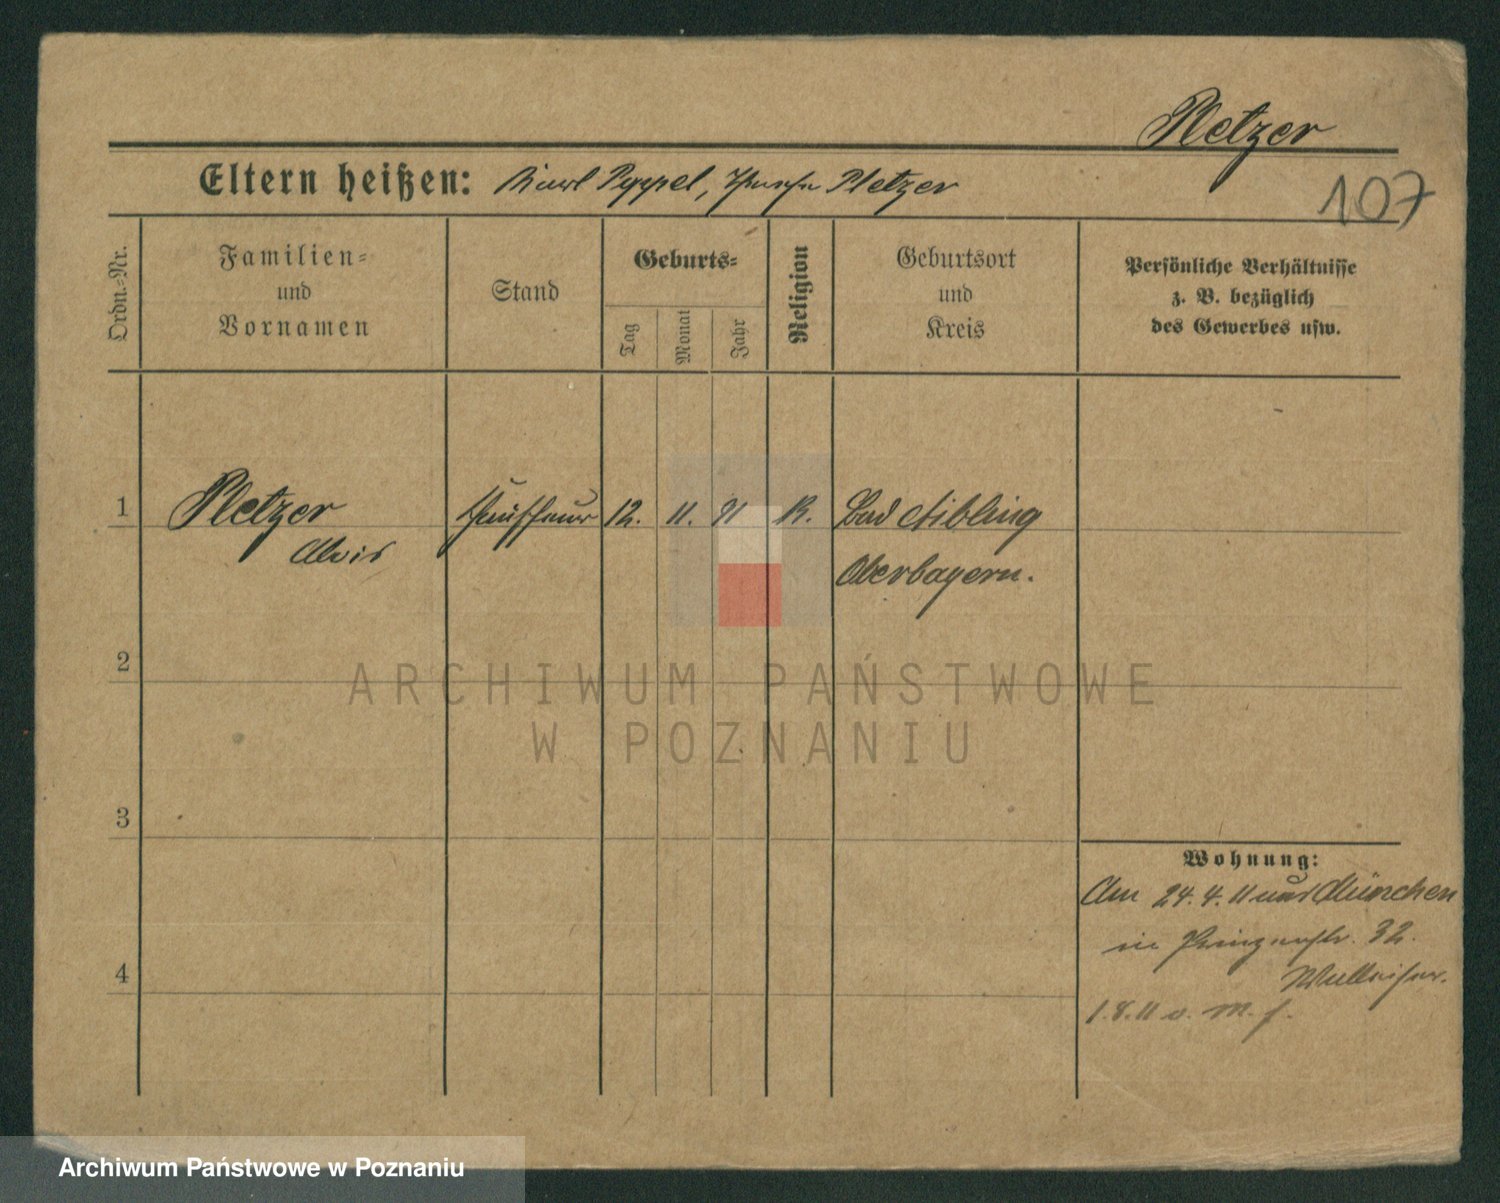 Pletzer
Eltern heißen: Karl Peppel, Pletzer
107
Ordn.-Nr.
Familien-
und
Vornamen
Stand
Geburts-
Tag
Monat
Jahr
Religion
Geburtsort
und
Kreis
Persönliche Verhältnisse
z. B. bezüglich
des Gewerbes usw.
1 Pletzer Chauffeur 12. 11. 91 K. Bad Aibling
Alois Oberbayern.
2
ARCHIWUM PAŃSTWOWE
W POZNANIU
3
Wohnung:
Am 24. 4. 11 aus München
in Prinzenstr. 32.
4
1.8.11 v. M. f.
Archiwum Państwowe w Poznaniu